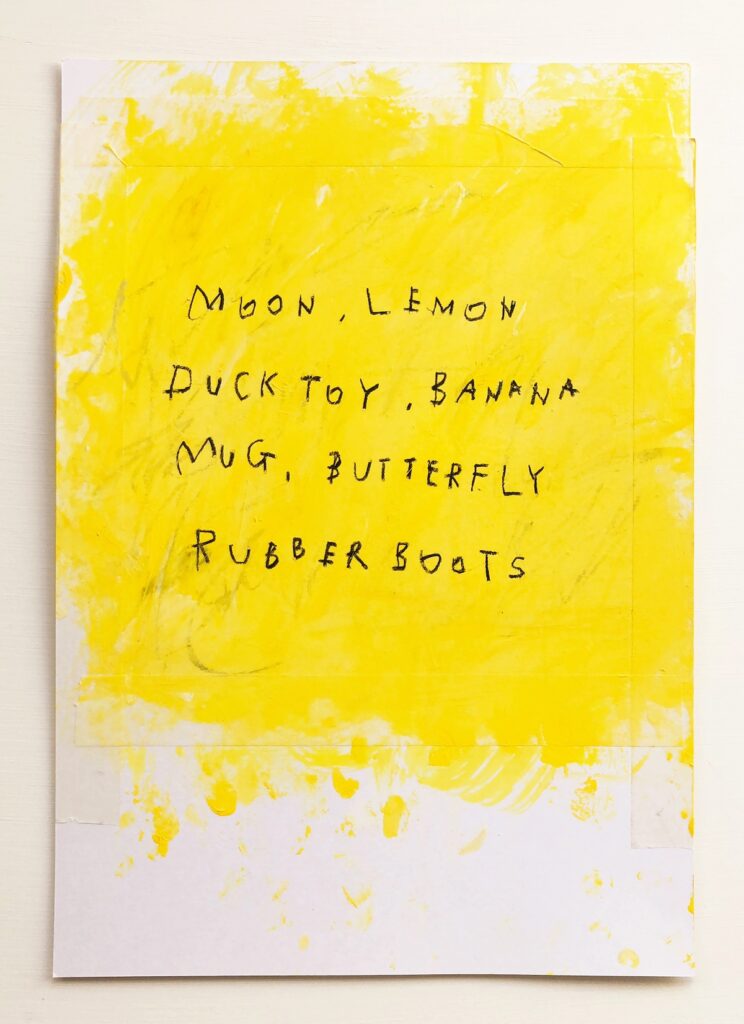 MOON, LEMON
DUCK TOY, BANANA
MUG, BUTTERFLY
RUBBER BOOTS